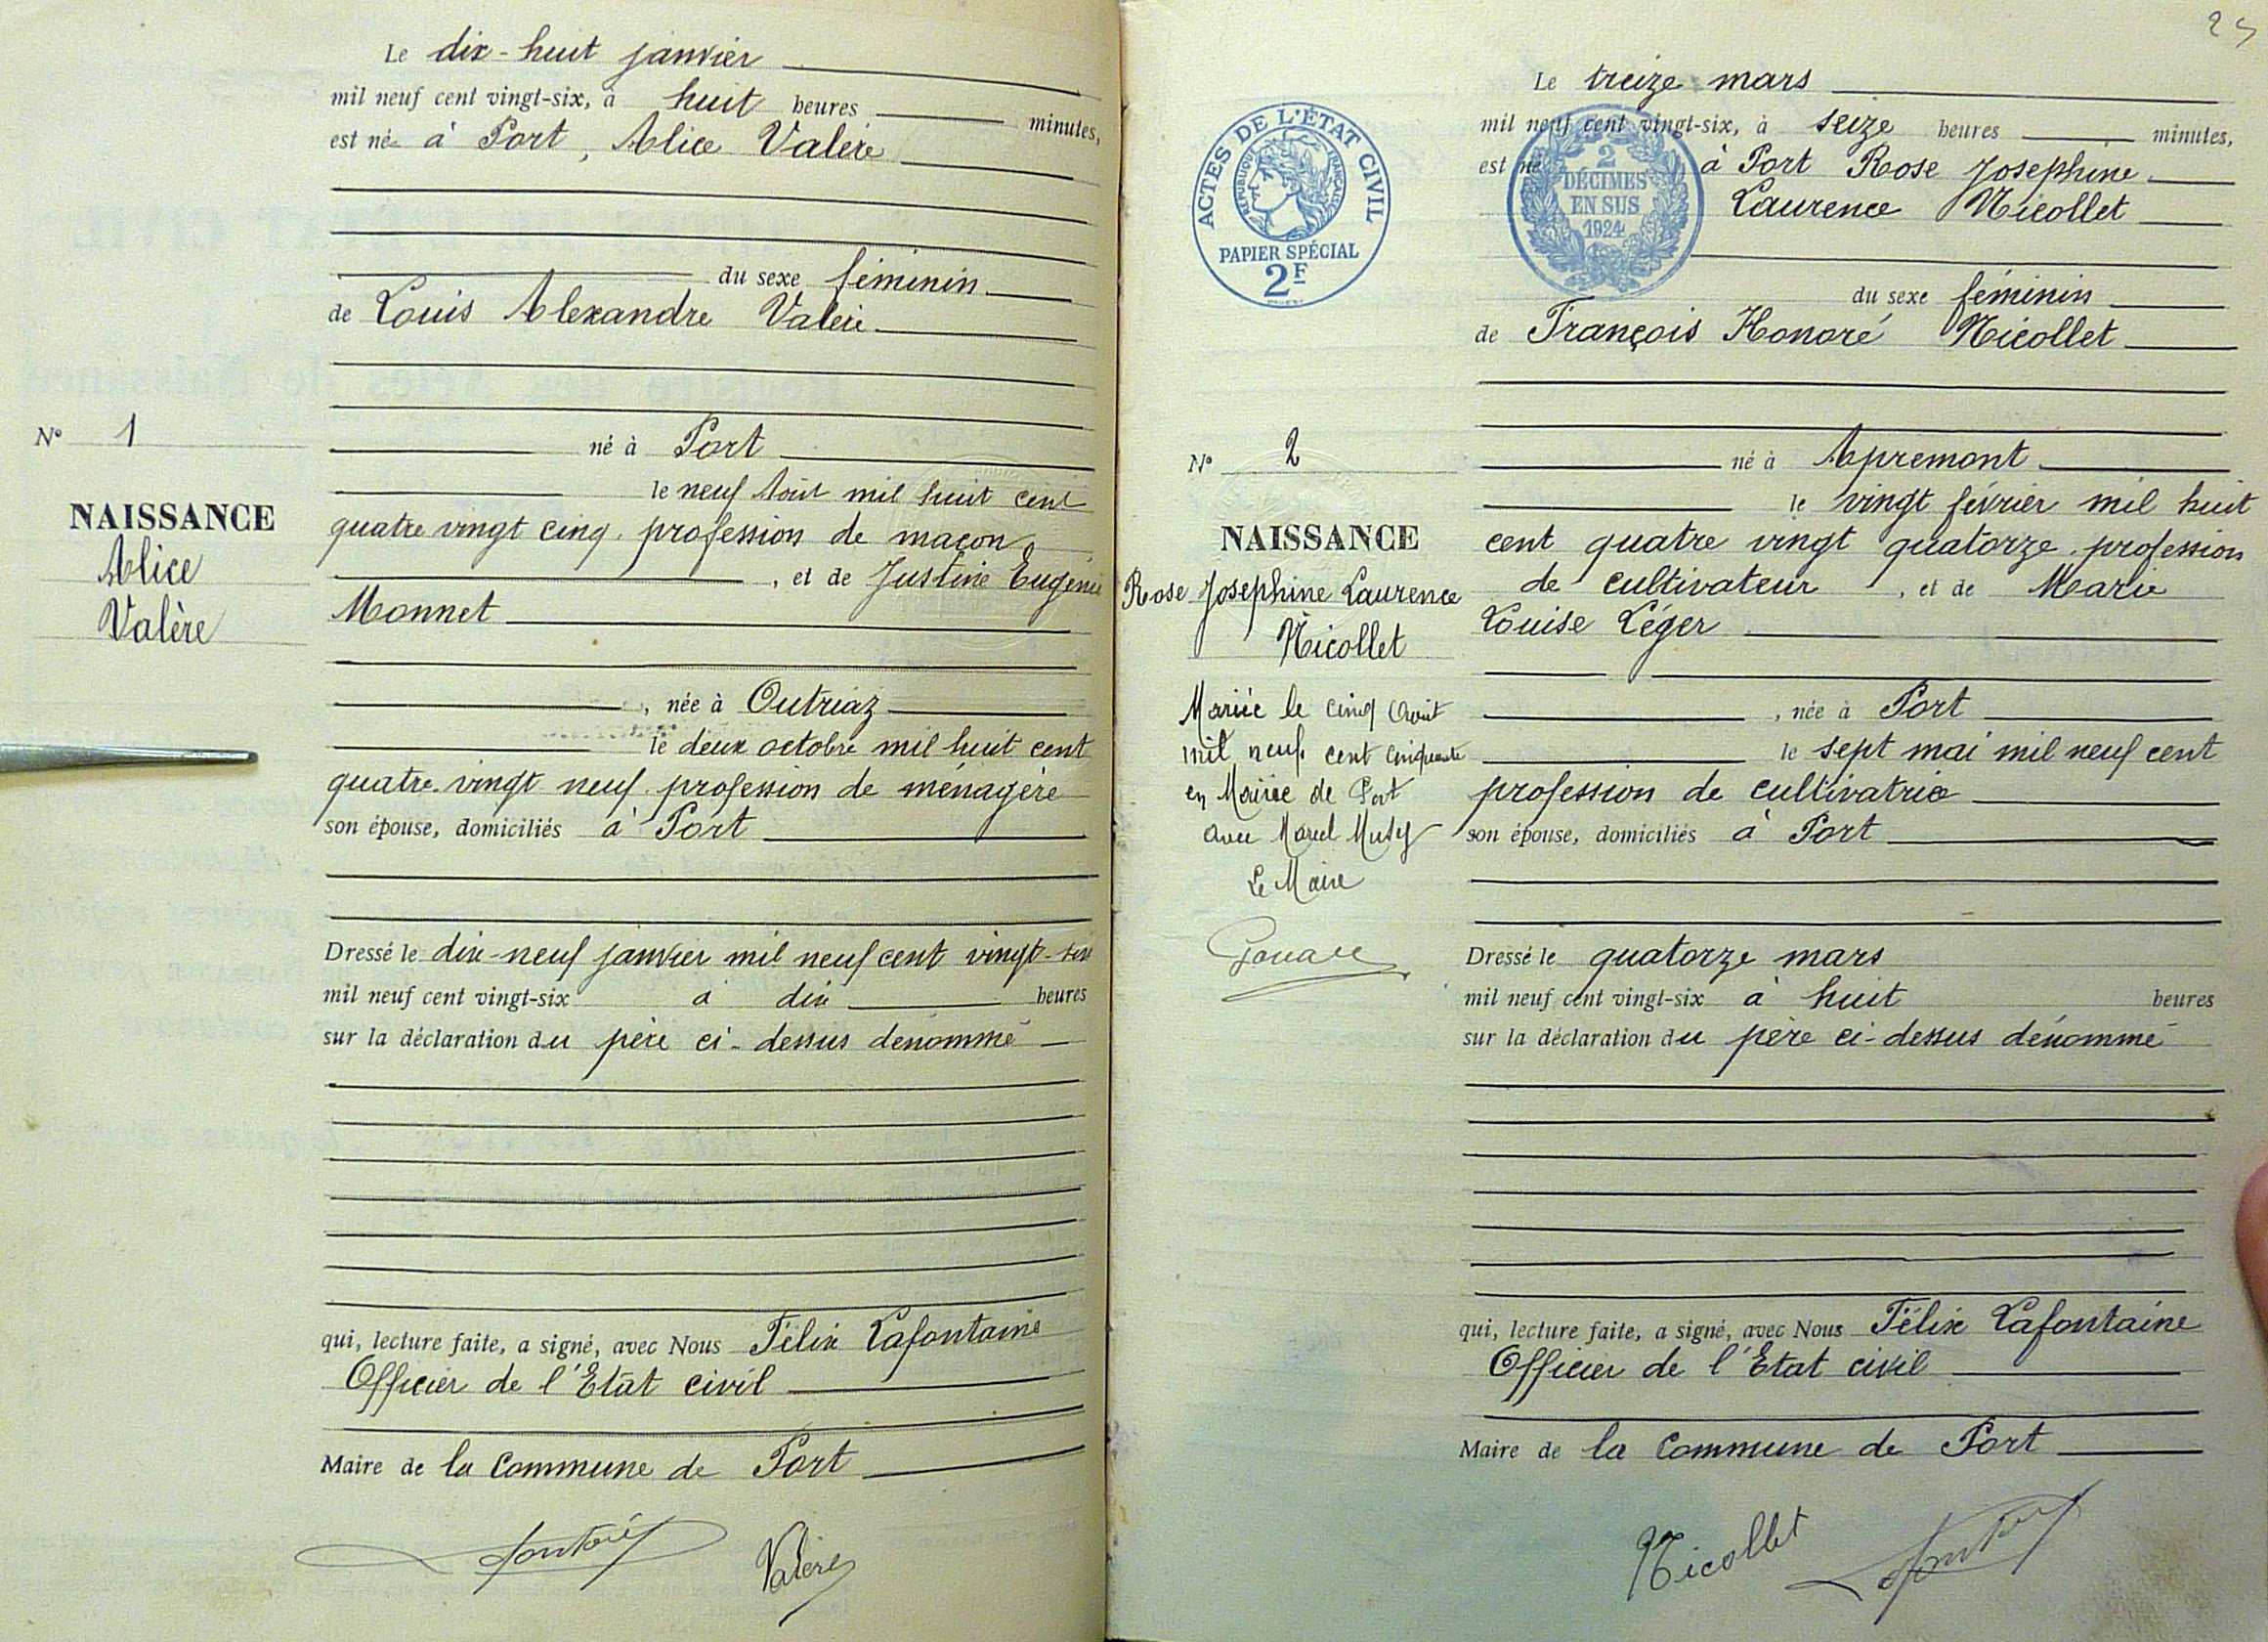 Le dix-huit janvier
mil neuf cent vingt-six, à huit heures minutes,
est née à Port, Alice Valère
du sexe féminin
de Louis Alexandre Valère
né à Port
le neuf Août mil huit cent
quatre vingt cinq. profession de maçon
, et de Justine Eugénie
Monnet
, née à Outriaz
le deux octobre mil huit cent
quatre-vingt neuf. profession de ménagère
son épouse, domiciliés à Port
Dressé le dix-neuf janvier mil neuf cent vingt-six
mil neuf cent vingt-six à dix heures
sur la déclaration du père ci-dessus dénommé
qui, lecture faite, a signé, avec Nous Félix Lafontaine
Officier de l'Etat civil
Maire de la Commune de Port
Valère
N° 1
NAISSANCE
Alice
Valère
25
Le treize mars
mil neuf cent vingt-six, à seize heures minutes,
est né à Port Rose Josephine
Laurence Nicollet
du sexe féminin
de François Honoré Nicollet
né à Apremont
le vingt février mil huit
cent quatre vingt quatorze. profession
de cultivateur , et de Marie
Louise Léger
, née à Port
le sept mai mil neuf cent
profession de cultivatrice
son épouse, domiciliés à Port
Dressé le quatorze mars
mil neuf cent vingt-six à huit heures
sur la déclaration du père ci-dessus dénommé
qui, lecture faite, a signé, avec Nous Félix Lafontaine
Officier de l'Etat civil
Maire de la Commune de Port
Nicollet
ACTES DE L'ÉTAT CIVIL
RÉPUBLIQUE FRANÇAISE
PAPIER SPÉCIAL
2F
2
DÉCIMES
EN SUS
1924
N° 2
NAISSANCE
Rose Josephine Laurence
Nicollet
Mariée le cinq Août
mil neuf cent cinquante
en Mairie de Port
avec Marcel
Le Maire